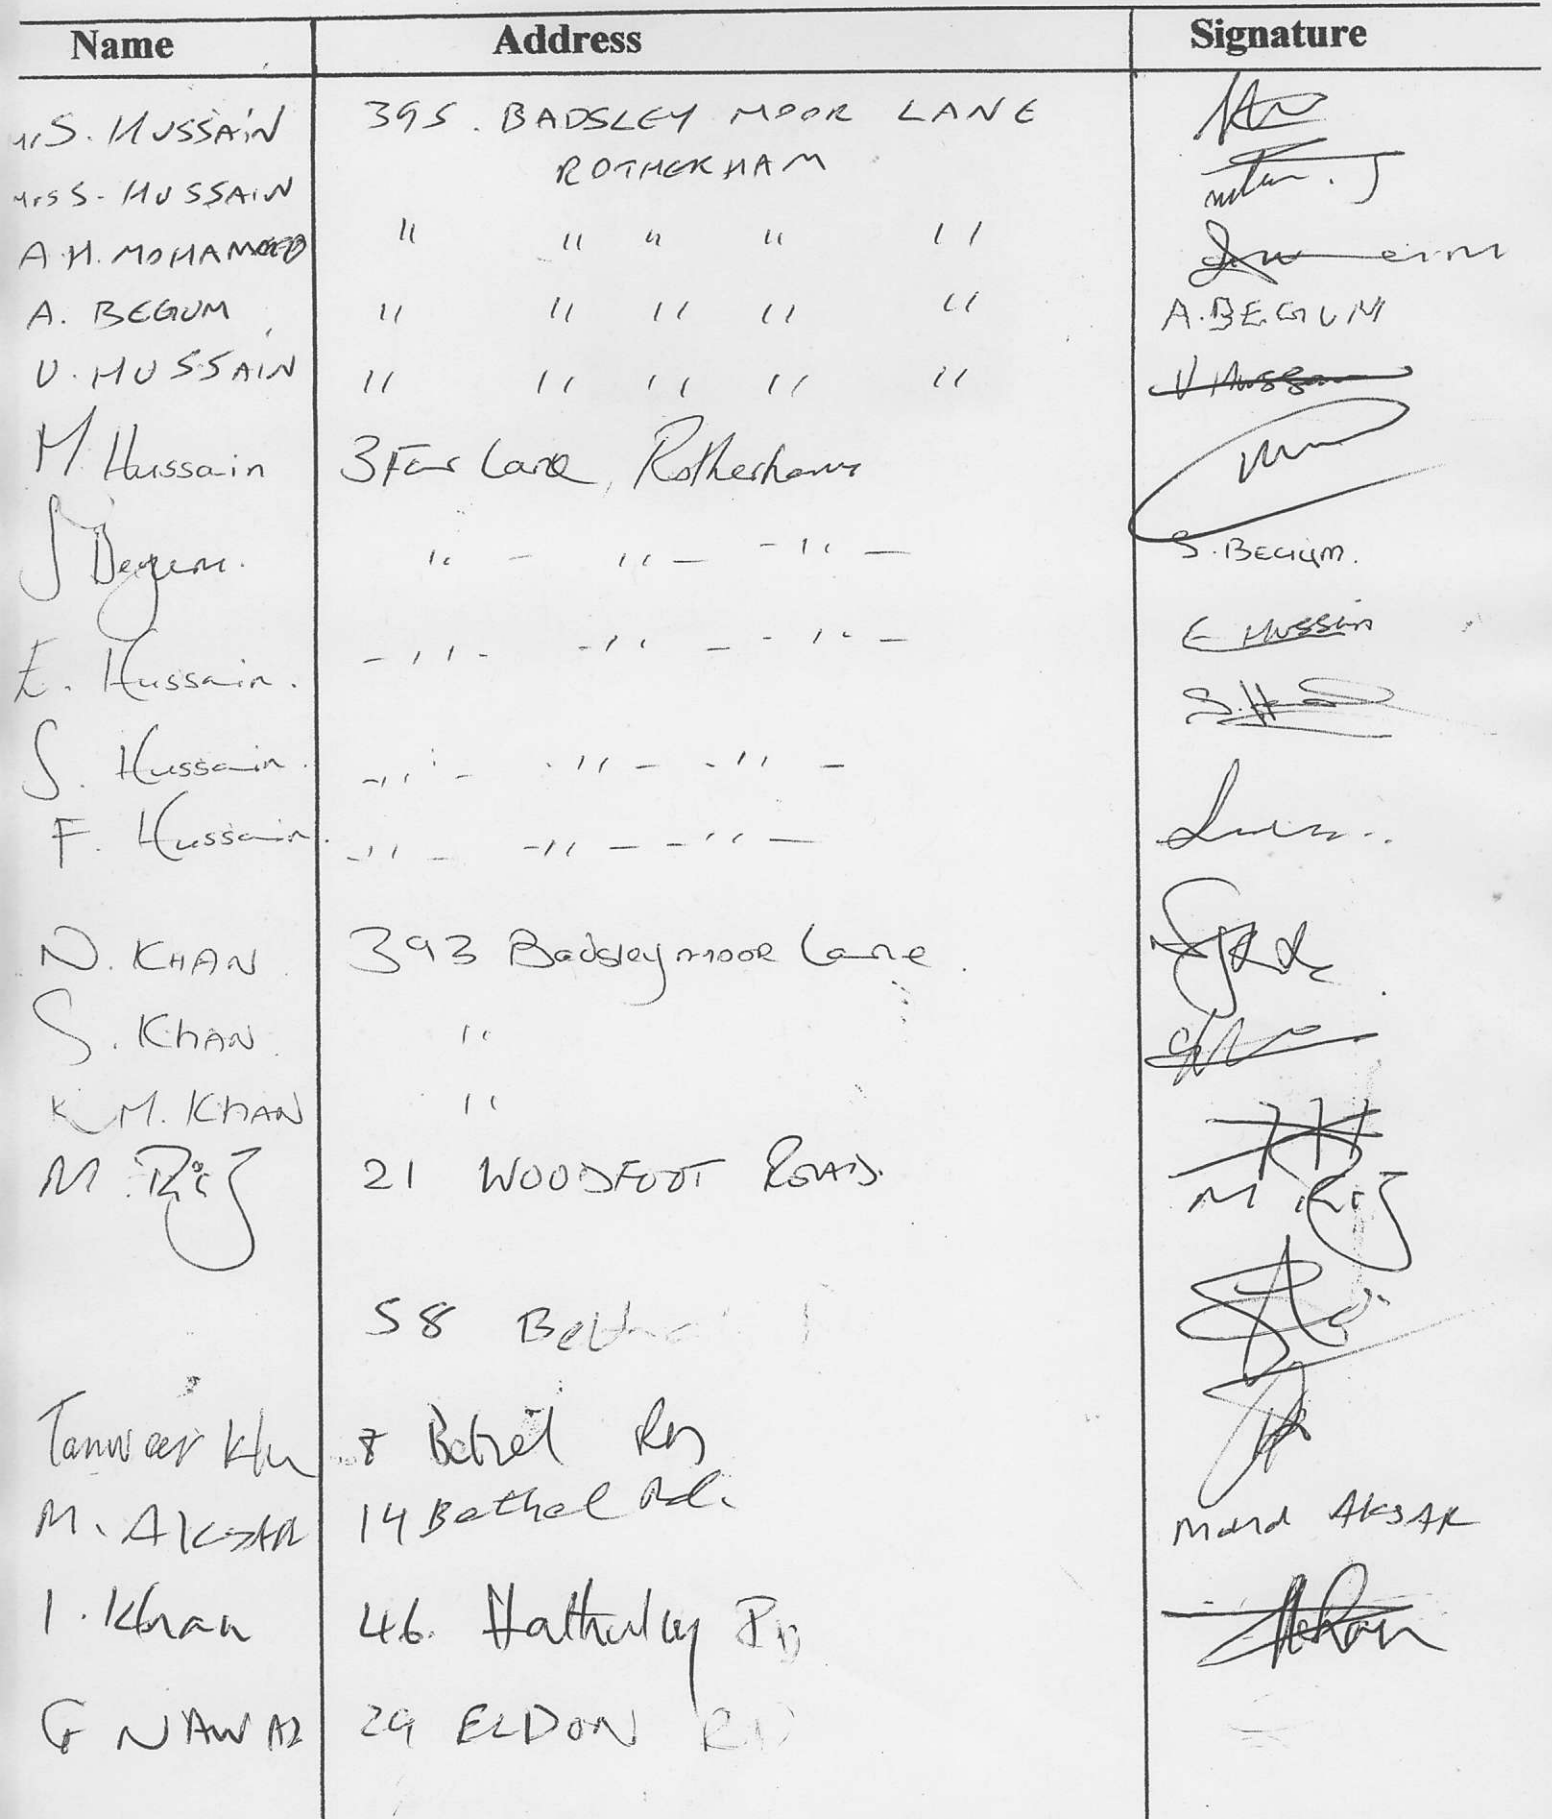 Name Address Signature
Mr S. HUSSAIN 395. BADSLEY MOOR LANE
Mrs S. HUSSAIN ROTHERHAM
A.H. MOHAMMED " " " " "
A. BEGUM " " " " " A. BEGUM
U. HUSSAIN " " " " " U Hussain
M Hussain 3 Far Lane, Rotherham
S Begum. " - " - - " - S. BEGUM.
E. Hussain. - " - - " - - " - E Hussain
S. Hussain. - " - - " - - " - S. H
F. Hussain. - " - - " - - " -
N. KHAN 393 Badsley moor Lane
S. KHAN "
K M. KHAN "
M. Riz 21 WOODFOOT ROAD. M Riz
58
Tanweer 8 Bethel RD
M. AKSAR 14 Bethel Rd. Mohd AKSAR
I. Khan 46. Hatherley RD
G NAWAZ 29 ELDON RD